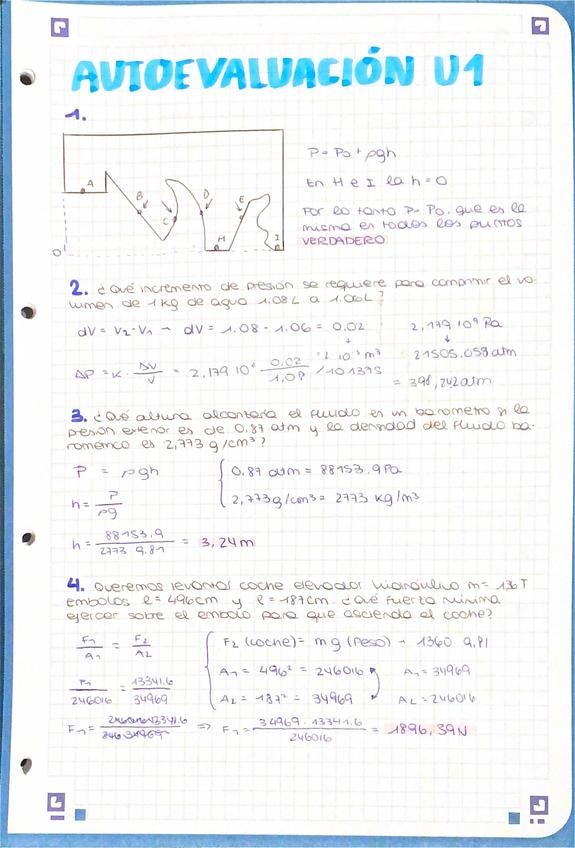 AUTOEVALUACIÓN U1
1.
A
B
C
D
E
H
I
0
P = P₀ + ρgh
En H e I la h = 0
Por lo tanto P = P₀, que es la
misma en todos los puntos
VERDADERO
2. ¿Qué incremento de presión se requiere para comprimir el vo-
lumen de 1 kg de agua 1.08 L a 1.06 L?
dV = V₂ - V₁ → dV = 1.08 - 1.06 = 0.02
2,179 10⁹ Pa
↓
21505.059 atm
ΔP = K · ΔV/V = 2,179 10⁹ 0.02/1,08 /101325
= 398,242 atm
3. ¿Qué altura alcanzaría el fluido en un barometro si la
presión exterior es de 0.87 atm y la densidad del fluido ba-
rométrico es 2,773 g/cm³?
P = ρgh
0.87 atm = 88153.9 Pa
h = P/ρg
2,773 g/cm³ = 2773 kg/m³
h = 88153.9/2773 9.81 = 3,24 m
4. Queremos levantar coche elevador hidráulico m = 1.36 T
embolos l = 496 cm y l = 187 cm. ¿Qué fuerza mínima
ejercer sobre el embolo para que ascienda el coche?
F₁/A₁ = F₂/A₂
F₂ (coche) = m g (peso) → 1360 · 9,81
A₁ = 496² = 246016
A₁ = 34969
F₁/246016 = 13341.6/34969
A₂ = 187² = 34969
A₂ = 246016
F₁ = ⇒ F₁ = 34969 · 13341.6/246016 = 1896,39 N